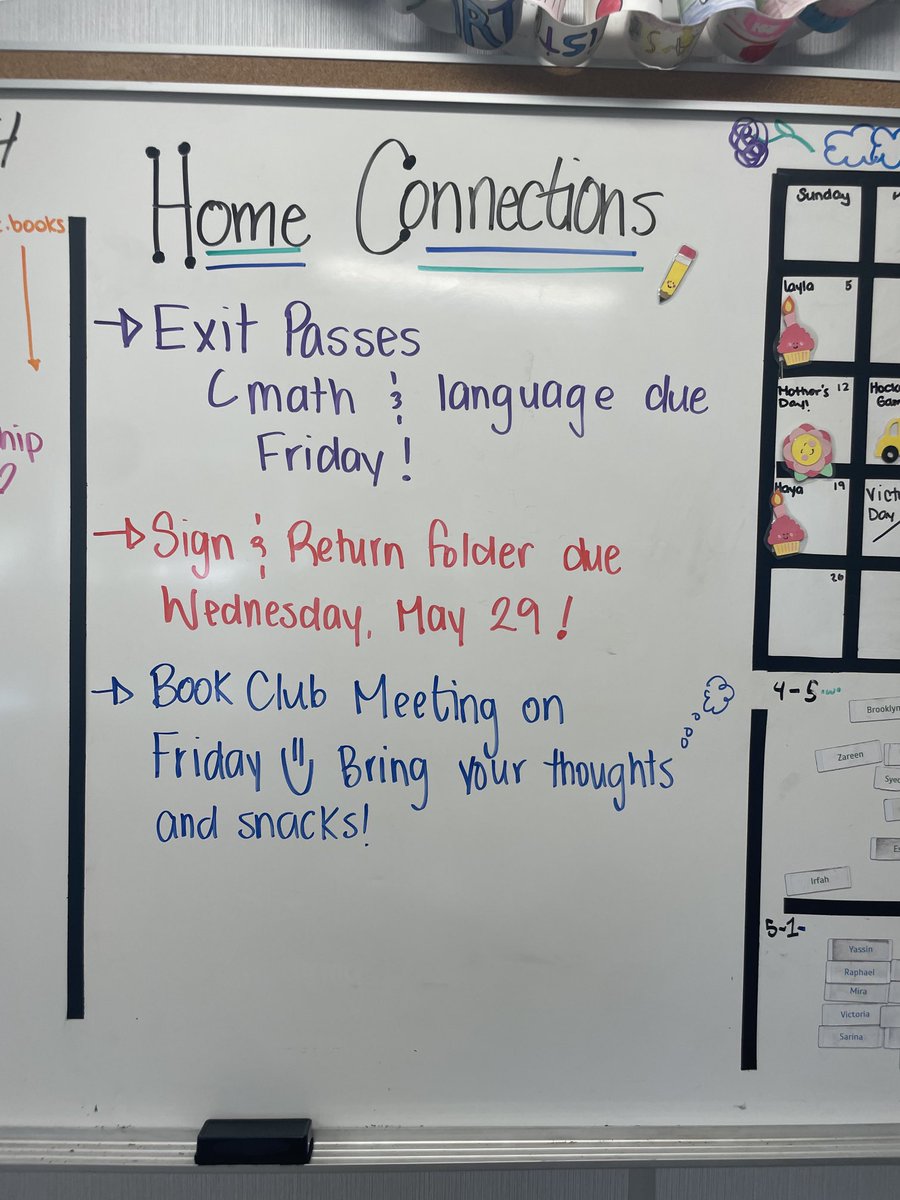 ART
IST
H
Home Connections
.books
hip
→ Exit Passes
(math & language due
Friday!
→ Sign & Return folder due
Wednesday, May 29!
→ Book Club Meeting on
Friday Bring your thoughts
and snacks!
Sunday
Layla 5
Mother's 12
Day!
Haya 19
Vict
Day
26
4-5
Brooklyn
Zareen
Irfah
5-1-
Yassin
Raphael
Mira
Victoria
Sarina